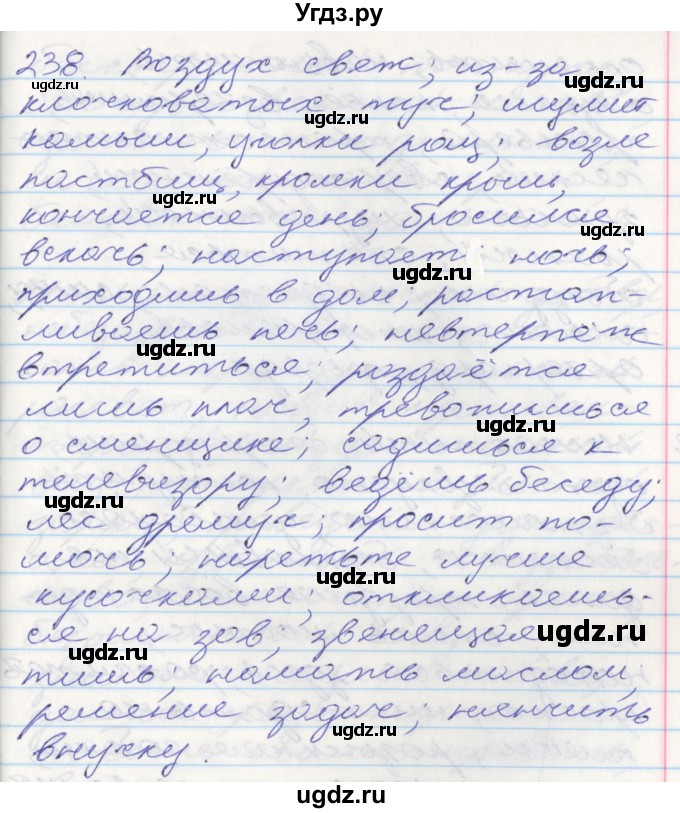 Угдз.ру
238. Воздух свеж; из-за
клочковатых туч; шумит
камыш; уголки рощ; возле
пастбищ, кромки крыш,
кончается день; бросился
вскачь; наступает ночь;
приходишь в дом; растап-
ливаешь печь; невтерпёж
втретиться; раздаётся
лишь плач, тревожишься
о сменщике; садишься к
телевизору; ведёшь беседу;
лес дремуч; просит по-
мочь; нарежьте лучше
кусочками; откликаешь-
ся на зов; звенящая
тишь; намазть маслом,
решение задач; нянчить
внучку.
ugdz.ru
ugdz.ru
ugdz.ru
ugdz.ru
ugdz.ru
ugdz.ru
ugdz.ru
ugdz.ru
ugdz.ru
ugdz.ru
ugdz.ru
ugdz.ru
ugdz.ru
ugdz.ru